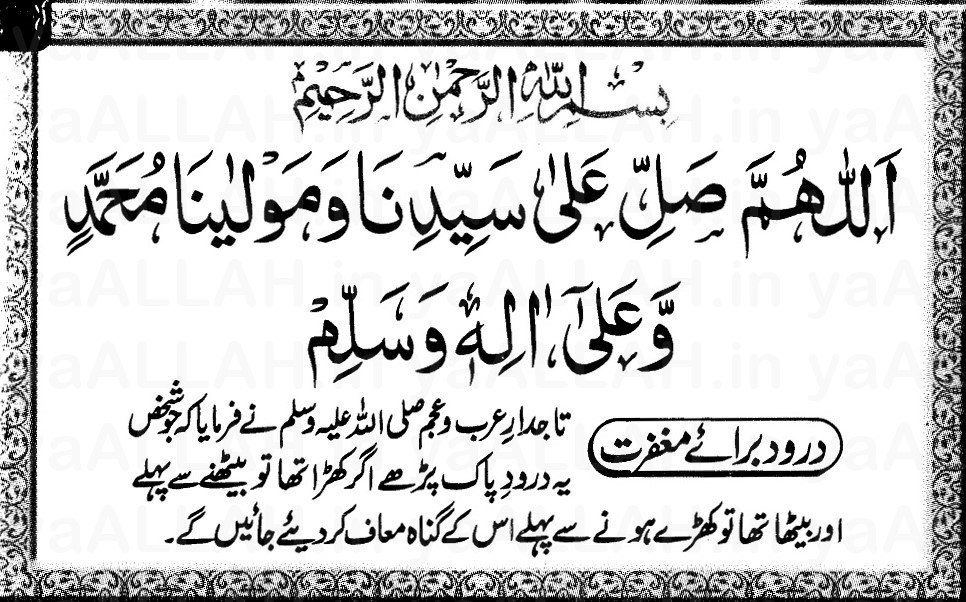 بِسْمِ اللّٰهِ الرَّحْمٰنِ الرَّحِيْمِ
اَللّٰهُمَّ صَلِّ عَلٰى سَيِّدِنَا وَمَوْلٰينَا مُحَمَّدٍ
وَّعَلٰٓى اٰلِهٖ وَسَلِّمْ
درود برائے مغفرت
تاجدارِ عرب و عجم صلی اللہ علیہ وسلم نے فرمایا کہ جو شخص
یہ درودِ پاک پڑھے اگر کھڑا تھا تو بیٹھنے سے پہلے
اور بیٹھا تھا تو کھڑے ہونے سے پہلے اس کے گناہ معاف کر دیئے جائیں گے۔
yaALLAH.in